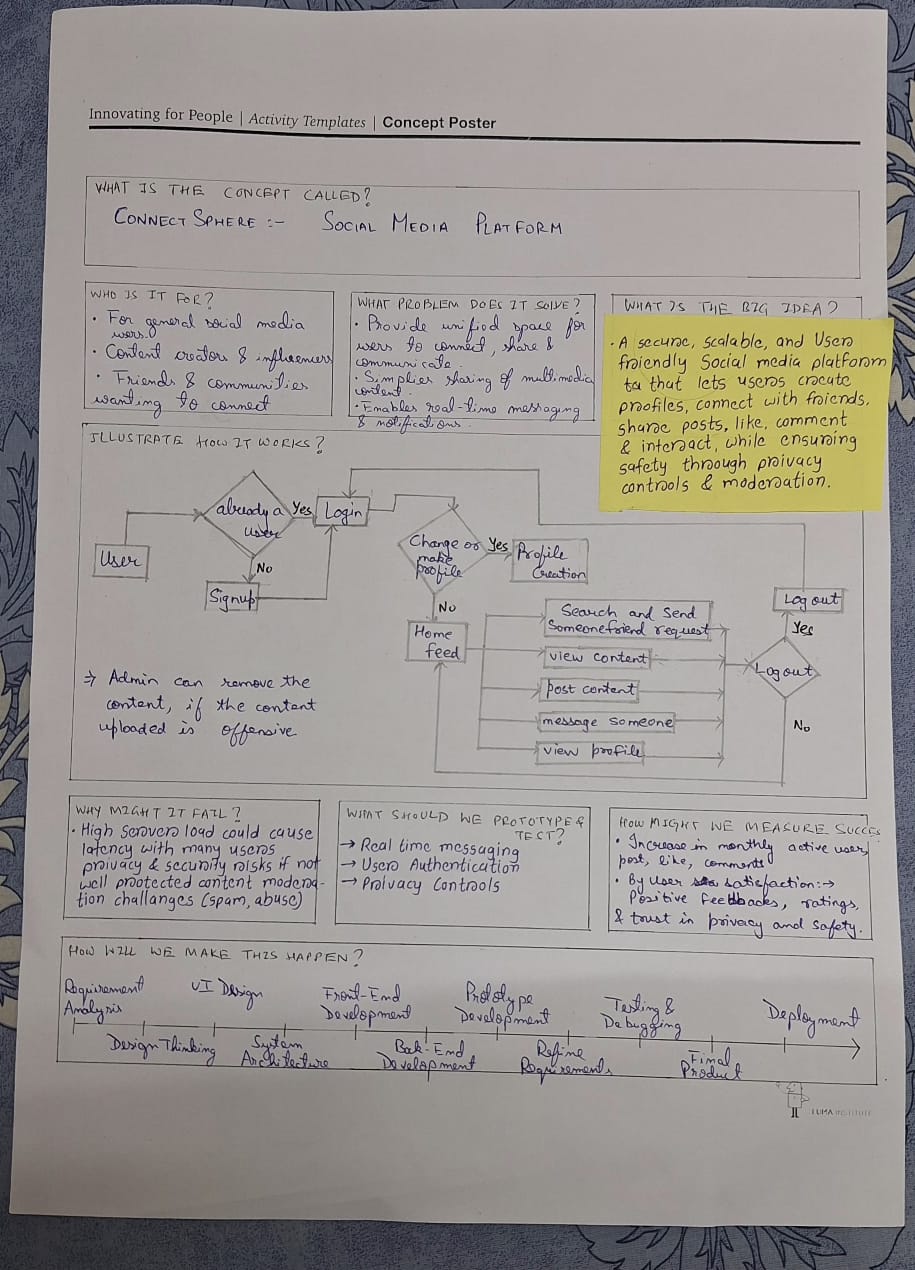 Innovating for People | Activity Templates | Concept Poster
WHAT IS THE CONCEPT CALLED?
CONNECTSPHERE :- SOCIAL MEDIA PLATFORM
WHO IS IT FOR?
• For general social media
users.
• Content creators & influencers
• Friends & communities
wanting to connect
WHAT PROBLEM DOES IT SOLVE?
• Provide unified space for
users to connect, share &
communicate.
• Simplies sharing of multimedia
content.
• Enables real-time messaging
& notifications.
WHAT IS THE BIG IDEA?
• A secure, scalable, and User
friendly Social media platform
ta that lets users create
profiles, connect with friends,
share posts, like, comment
& interact, while ensuring
safety through privacy
controls & moderation.
ILLUSTRATE HOW IT WORKS?
User
already a
user
Yes
No
Login
Signup
Change or
make
profile
Yes
No
Profile
Creation
Home
feed
Search and Send
Someone friend request
view content
post content
message someone
view profile
Log out
Yes
Log out
No
⇒ Admin can remove the
content, if the content
uploaded is offensive
WHY MIGHT IT FAIL?
• High servers load could cause
latency with many users
privacy & security risks if not
well protected content modera-
tion challanges (spam, abuse)
WHAT SHOULD WE PROTOTYPE &
TEST?
→ Real time messaging
→ User Authentication
→ Privacy Controls
HOW MIGHT WE MEASURE SUCCES
• Increase in monthly active user,
post, like, comments
• By user satisfaction:→
Positive Feedbacks, ratings,
& trust in privacy and safety.
HOW WILL WE MAKE THIS HAPPEN?
Requirement
Analysis
Design Thinking
UI Design
System
Architecture
Front-End
Development
Back-End
Development
Prototype
Development
Refine
Requirements
Testing &
Debugging
Final
Product
Deployment
LUMA INSTITUTE